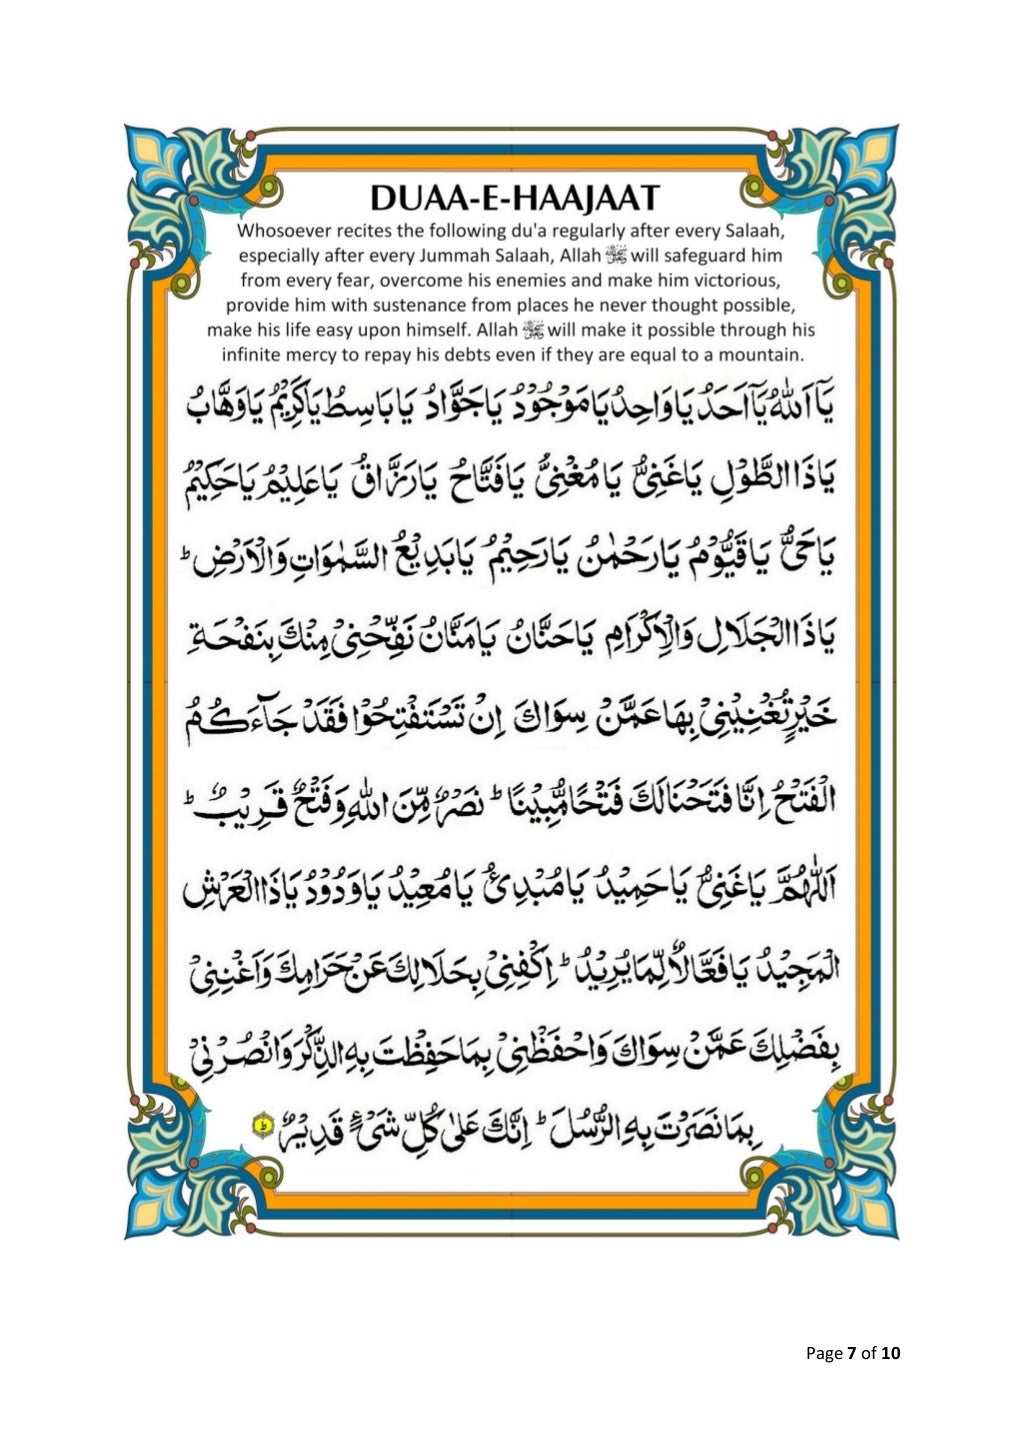 DUAA-E-HAAJAAT
Whosoever recites the following du'a regularly after every Salaah,
especially after every Jummah Salaah, Allah ﷻ will safeguard him
from every fear, overcome his enemies and make him victorious,
provide him with sustenance from places he never thought possible,
make his life easy upon himself. Allah ﷻ will make it possible through his
infinite mercy to repay his debts even if they are equal to a mountain.
يَآ اَللّٰهُ يَآ اَحَدُ يَا وَاحِدُ يَا مَوْجُوْدُ يَا جَوَّادُ يَا بَاسِطُ يَا كَرِيْمُ يَا وَهَّابُ
يَا ذَا الطَّوْلِ يَا غَنِيُّ يَا مُغْنِيُّ يَا فَتَّاحُ يَا رَزَّاقُ يَا عَلِيْمُ يَا حَكِيْمُ
يَا حَيُّ يَا قَيُّوْمُ يَا رَحْمٰنُ يَا رَحِيْمُ يَا بَدِيْعُ السَّمٰوَاتِ وَالْاَرْضِ ؕ
يَا ذَا الْجَلَالِ وَالْاِكْرَامِ يَا حَنَّانُ يَا مَنَّانُ نَفِّحْنِيْ مِنْكَ بِنَفْحَةِ
خَيْرٍ تُغْنِيْنِيْ بِهَا عَمَّنْ سِوَاكَ اِنْ تَسْتَفْتِحُوْا فَقَدْ جَآءَكُمُ
الْفَتْحُ اِنَّا فَتَحْنَا لَكَ فَتْحًا مُّبِيْنًا ؕ نَصْرٌ مِّنَ اللّٰهِ وَفَتْحٌ قَرِيْبٌ ؕ
اَللّٰهُمَّ يَا غَنِيُّ يَا حَمِيْدُ يَا مُبْدِئُ يَا مُعِيْدُ يَا وَدُوْدُ يَا ذَا الْعَرْشِ
الْمَجِيْدُ يَا فَعَّالًا لِّمَا يُرِيْدُ ؕ اِكْفِنِيْ بِحَلَالِكَ عَنْ حَرَامِكَ وَاَغْنِنِيْ
بِفَضْلِكَ عَمَّنْ سِوَاكَ وَاحْفَظْنِيْ بِمَا حَفِظْتَ بِهِ الذِّكْرَ وَانْصُرْنِيْ
بِمَا نَصَرْتَ بِهِ الرُّسُلَ ؕ اِنَّكَ عَلٰى كُلِّ شَيْءٍ قَدِيْرٌ ؕ
Page 7 of 10